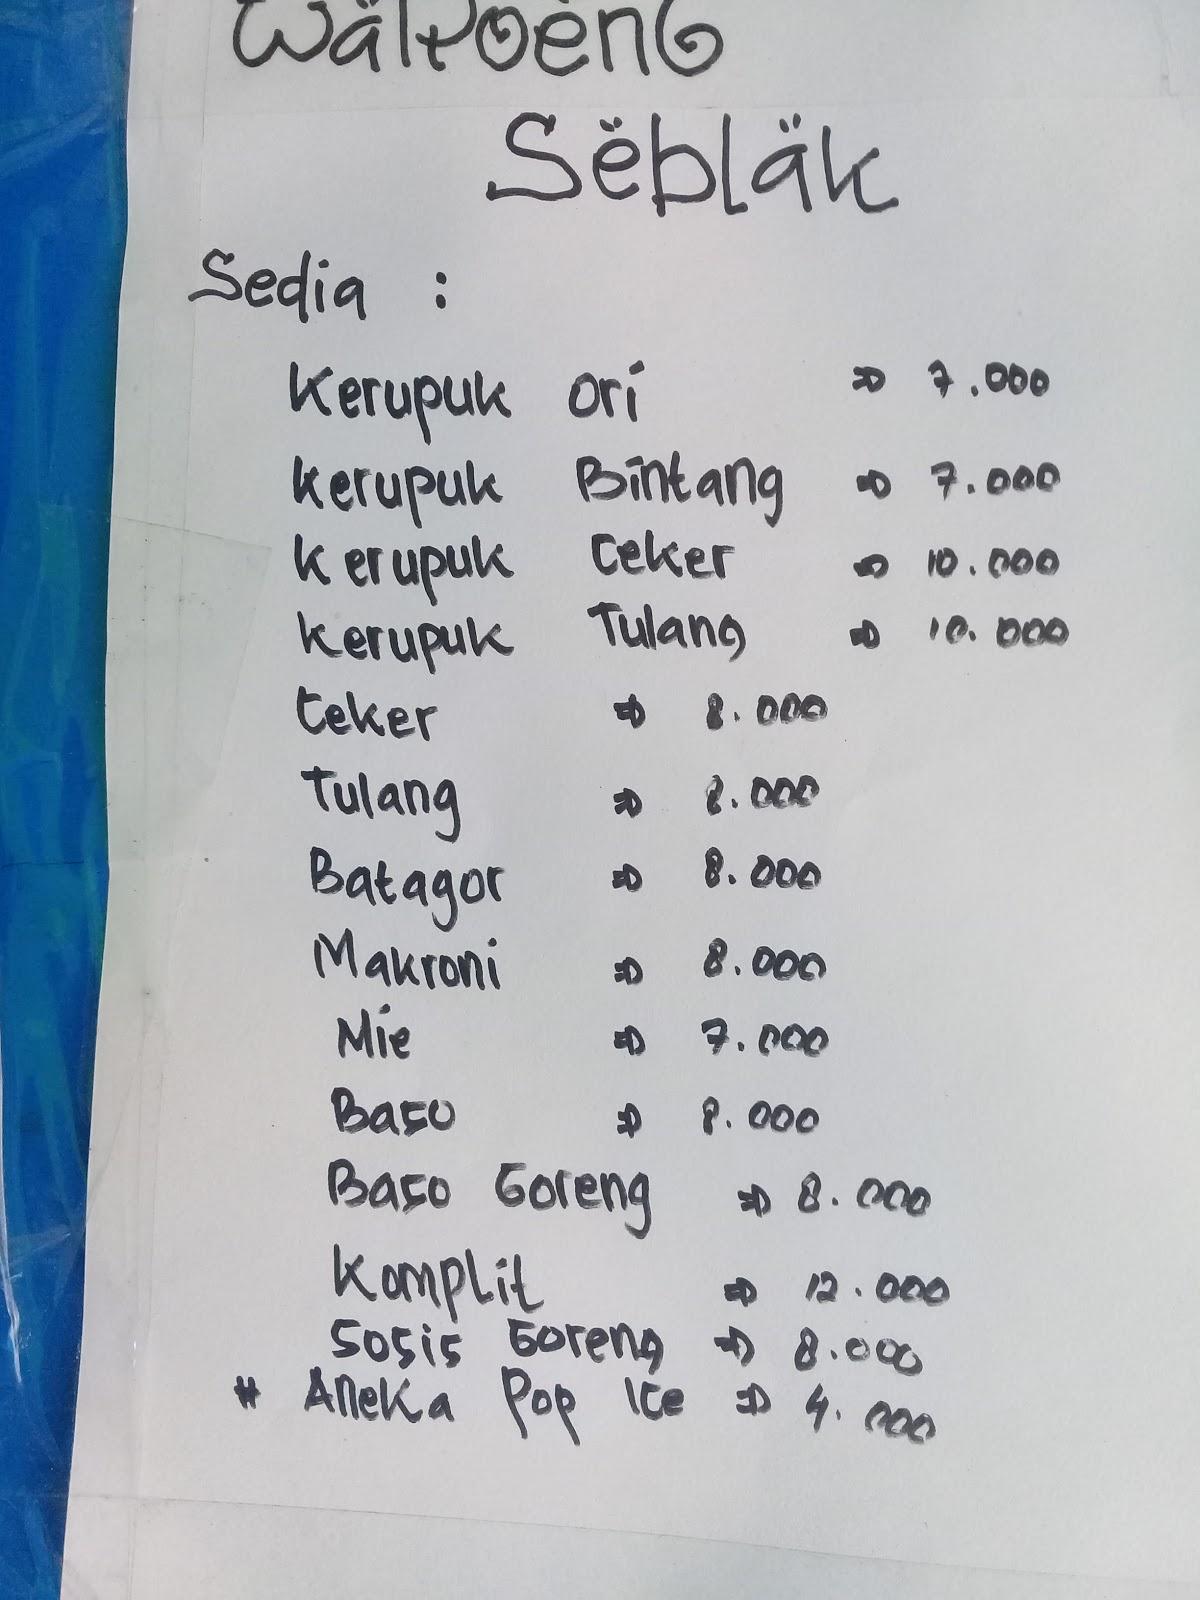 WärpoenG
Sëbläk
Sedia :
Kerupuk Ori => 7.000
Kerupuk Bintang => 7.000
Kerupuk Ceker => 10.000
Kerupuk Tulang => 10.000
Ceker => 8.000
Tulang => 8.000
Batagor => 8.000
Makroni => 8.000
Mie => 7.000
Baso => 8.000
Baso Goreng => 8.000
Komplit => 12.000
Sosis Goreng => 8.000
# Aneka Pop Ice => 4.000